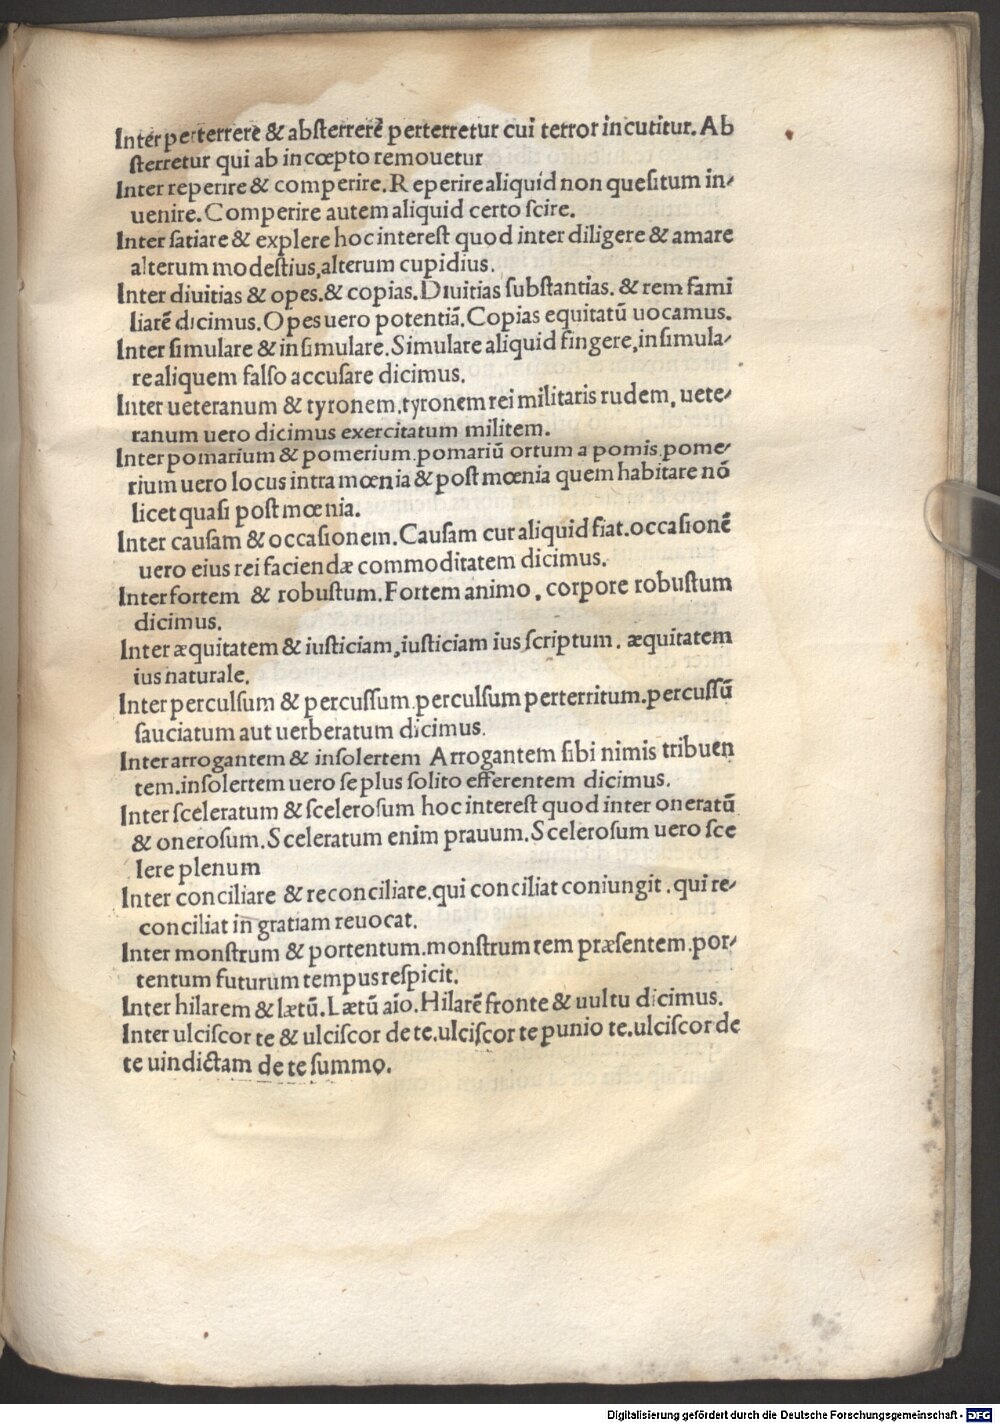 Inter perterrere & abſterrerē perterretur cui terror incutitur. Ab
ſterretur qui ab incœpto remouetur
Inter reperire & comperire. Reperire aliquid non queſitum in⸗
uenire. Comperire autem aliquid certo ſcire.
Inter ſatiare & explere hoc intereſt quod inter diligere & amare
alterum modeſtius, alterum cupidius.
Inter diuitias & opes. & copias. Diuitias ſubſtantias. & rem fami
liarē dicimus. Opes uero potentiā. Copias equitatū uocamus.
Inter ſimulare & inſimulare. Simulare aliquid fingere, inſimula⸗
re aliquem falſo accuſare dicimus.
Inter ueteranum & tyronem. tyronem rei militaris rudem, uete⸗
ranum uero dicimus exercitatum militem.
Inter pomarium & pomerium. pomariū ortum a pomis. pome⸗
rium uero locus intra mœnia & poſt mœnia quem habitare nō
licet quaſi poſt mœnia.
Inter cauſam & occaſionem. Cauſam cur aliquid fiat. occaſionē
uero eius rei faciendæ commoditatem dicimus.
Inter fortem & robuſtum. Fortem animo, corpore robuſtum
dicimus.
Inter æquitatem & iuſticiam, iuſticiam ius ſcriptum. æquitatem
ius naturale.
Inter perculſum & percuſſum. perculſum perterritum. percuſſū
ſauciatum aut uerberatum dicimus.
Inter arrogantem & inſolertem Arrogantem ſibi nimis tribuen
tem. inſolertem uero ſe plus ſolito efferentem dicimus.
Inter ſceleratum & ſceleroſum hoc intereſt quod inter oneratū
& oneroſum. Sceleratum enim prauum. Sceleroſum uero ſce
lere plenum
Inter conciliare & reconciliare. qui conciliat coniungit. qui re⸗
conciliat in gratiam reuocat.
Inter monſtrum & portentum. monſtrum rem præſentem. por⸗
tentum futurum tempus reſpicit.
Inter hilarem & lætū. Lætū aīo. Hilarē fronte & uultu dicimus.
Inter ulciſcor te & ulciſcor de te. ulciſcor te punio te. ulciſcor de
te uindictam de te ſummo.
Digitalisierung gefördert durch die Deutsche Forschungsgemeinschaft - DFG